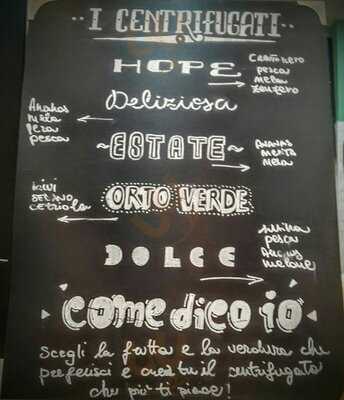 I CENTRIFUGATI
HOPE
pesca
mela
zenzero
Deliziosa
Ananas
mela
pera
pesca
~ESTATE~
ANANAS
menta
mela
ORTO VERDE
kiwi
SEDANO
cetriolo
DOLCE
pesca
melone
COME DICO IO
Scegli la frutta e la verdura che
preferisci e crea tu il centrifugato
che più ti piace!